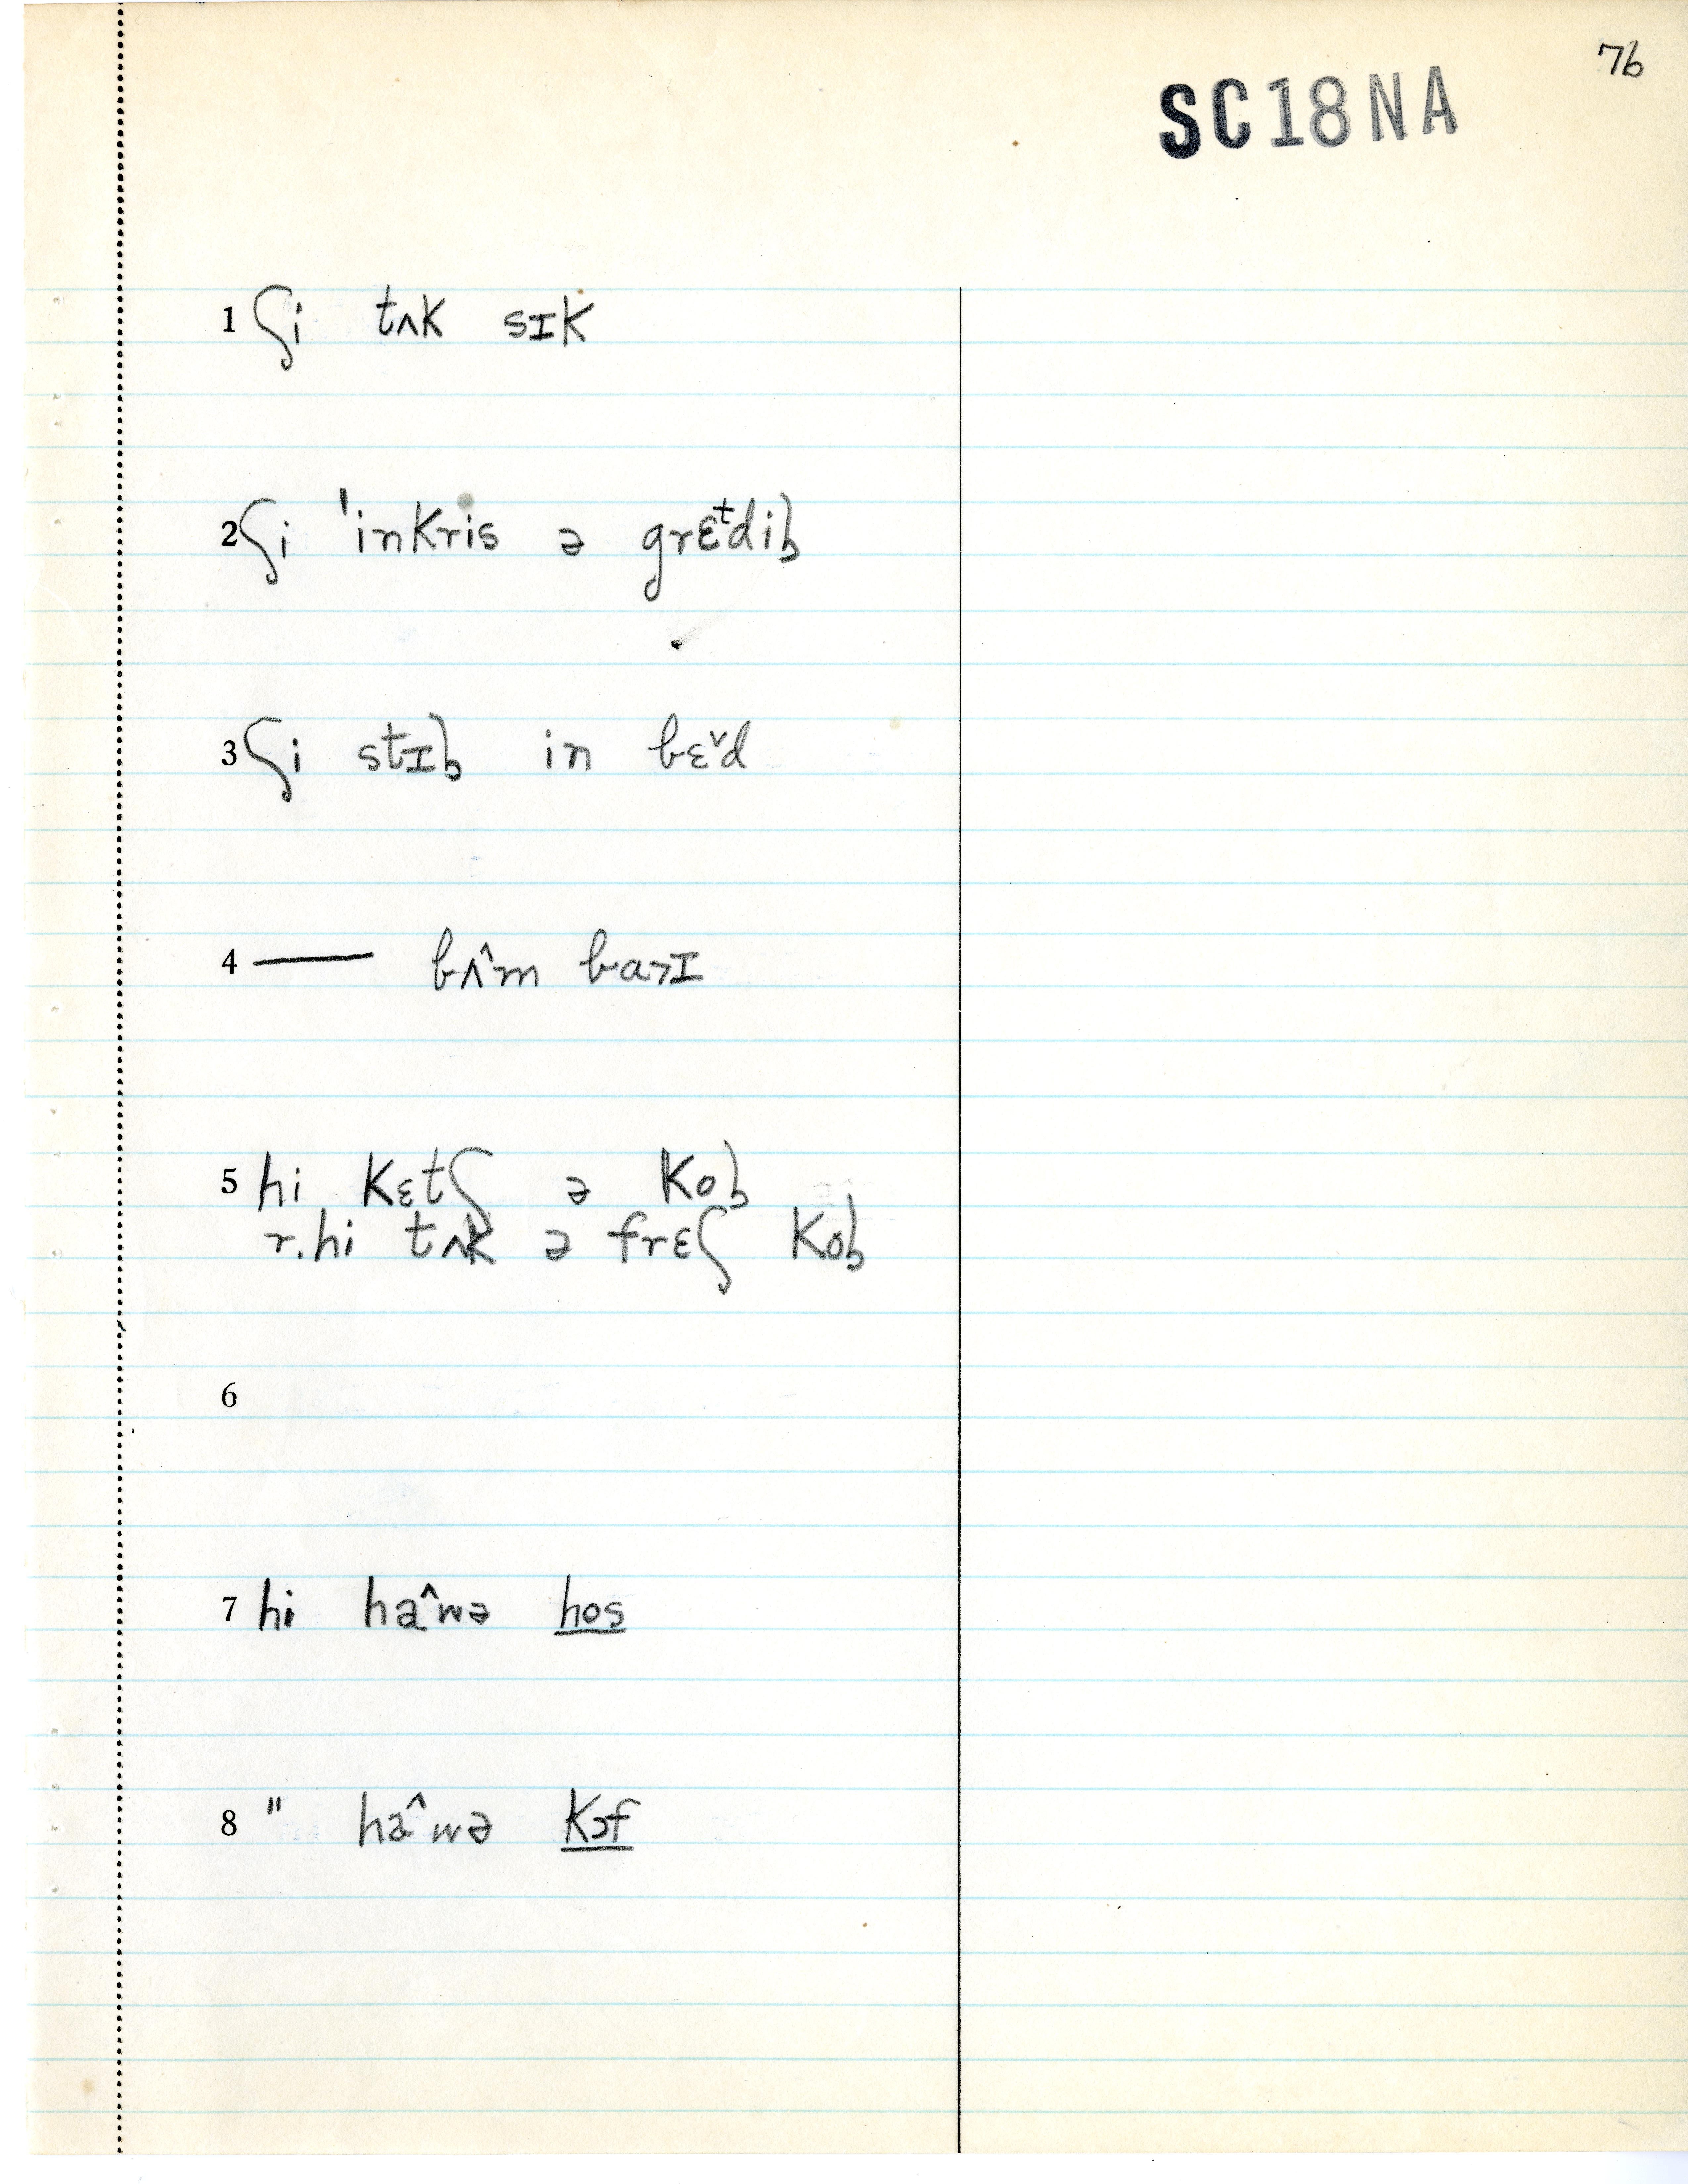 76
SC18NA
1 ʃi tʌk sɪk
2 ʃi ˈinkris ə grɛᵗdiɭ
3 ʃi stɪɭ in bɛ˅d
4 — bʌ^m ba˃ɪ
5 hi kɛtʃ ə koɭ
r. hi tʌk ə frɛʃ koɭ
6
7 hi ha^wə hos
8 " ha^wə kɔf